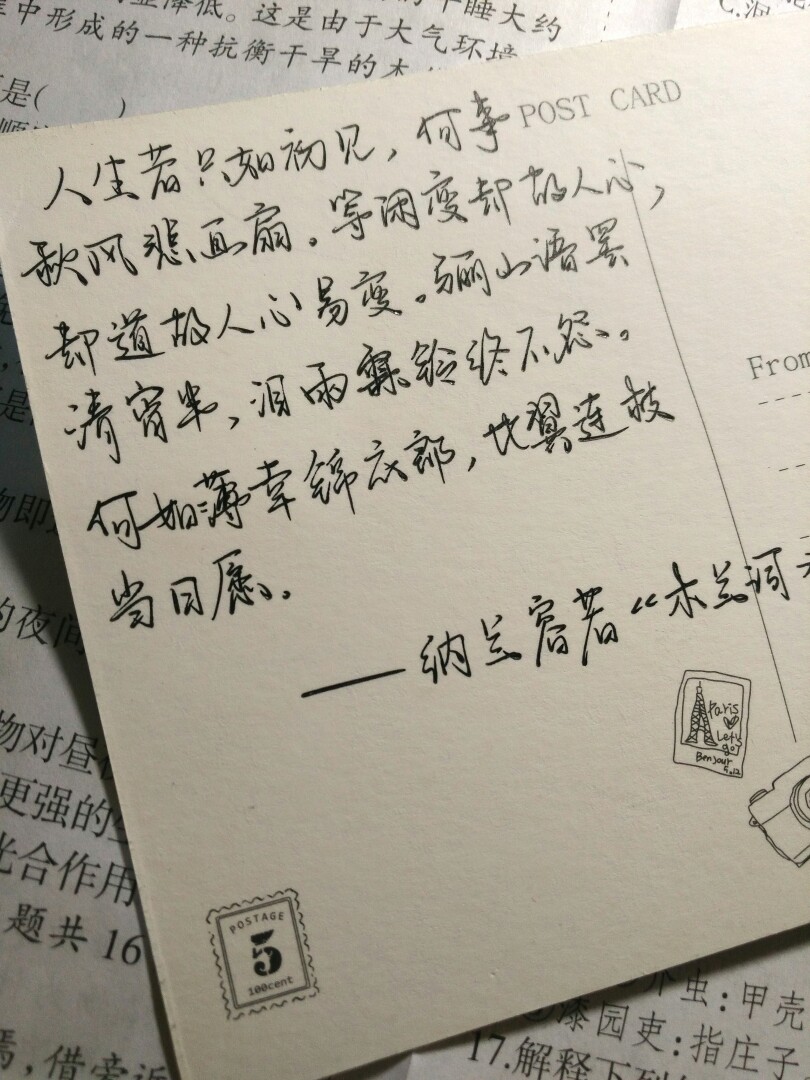 亚降低。这是由于大气环境
中形成的一种抗衡干旱的
是(　　)
POST CARD
人生若只如初见，何事
秋风悲画扇。等闲变却故人心，
却道故人心易变。骊山语罢
清宵半，泪雨霖铃终不怨。
何如薄幸锦衣郎，比翼连枝
当日愿。
——纳兰容若“木兰词
From
Paris
Let's
go!
Bonjour
5.12
POSTAGE
5
100cent
物即
的夜间
物对昼夜
更强的
光合作用
题共 16
焉，借旁近
介虫：甲壳
漆园吏：指庄子
17.解释下列